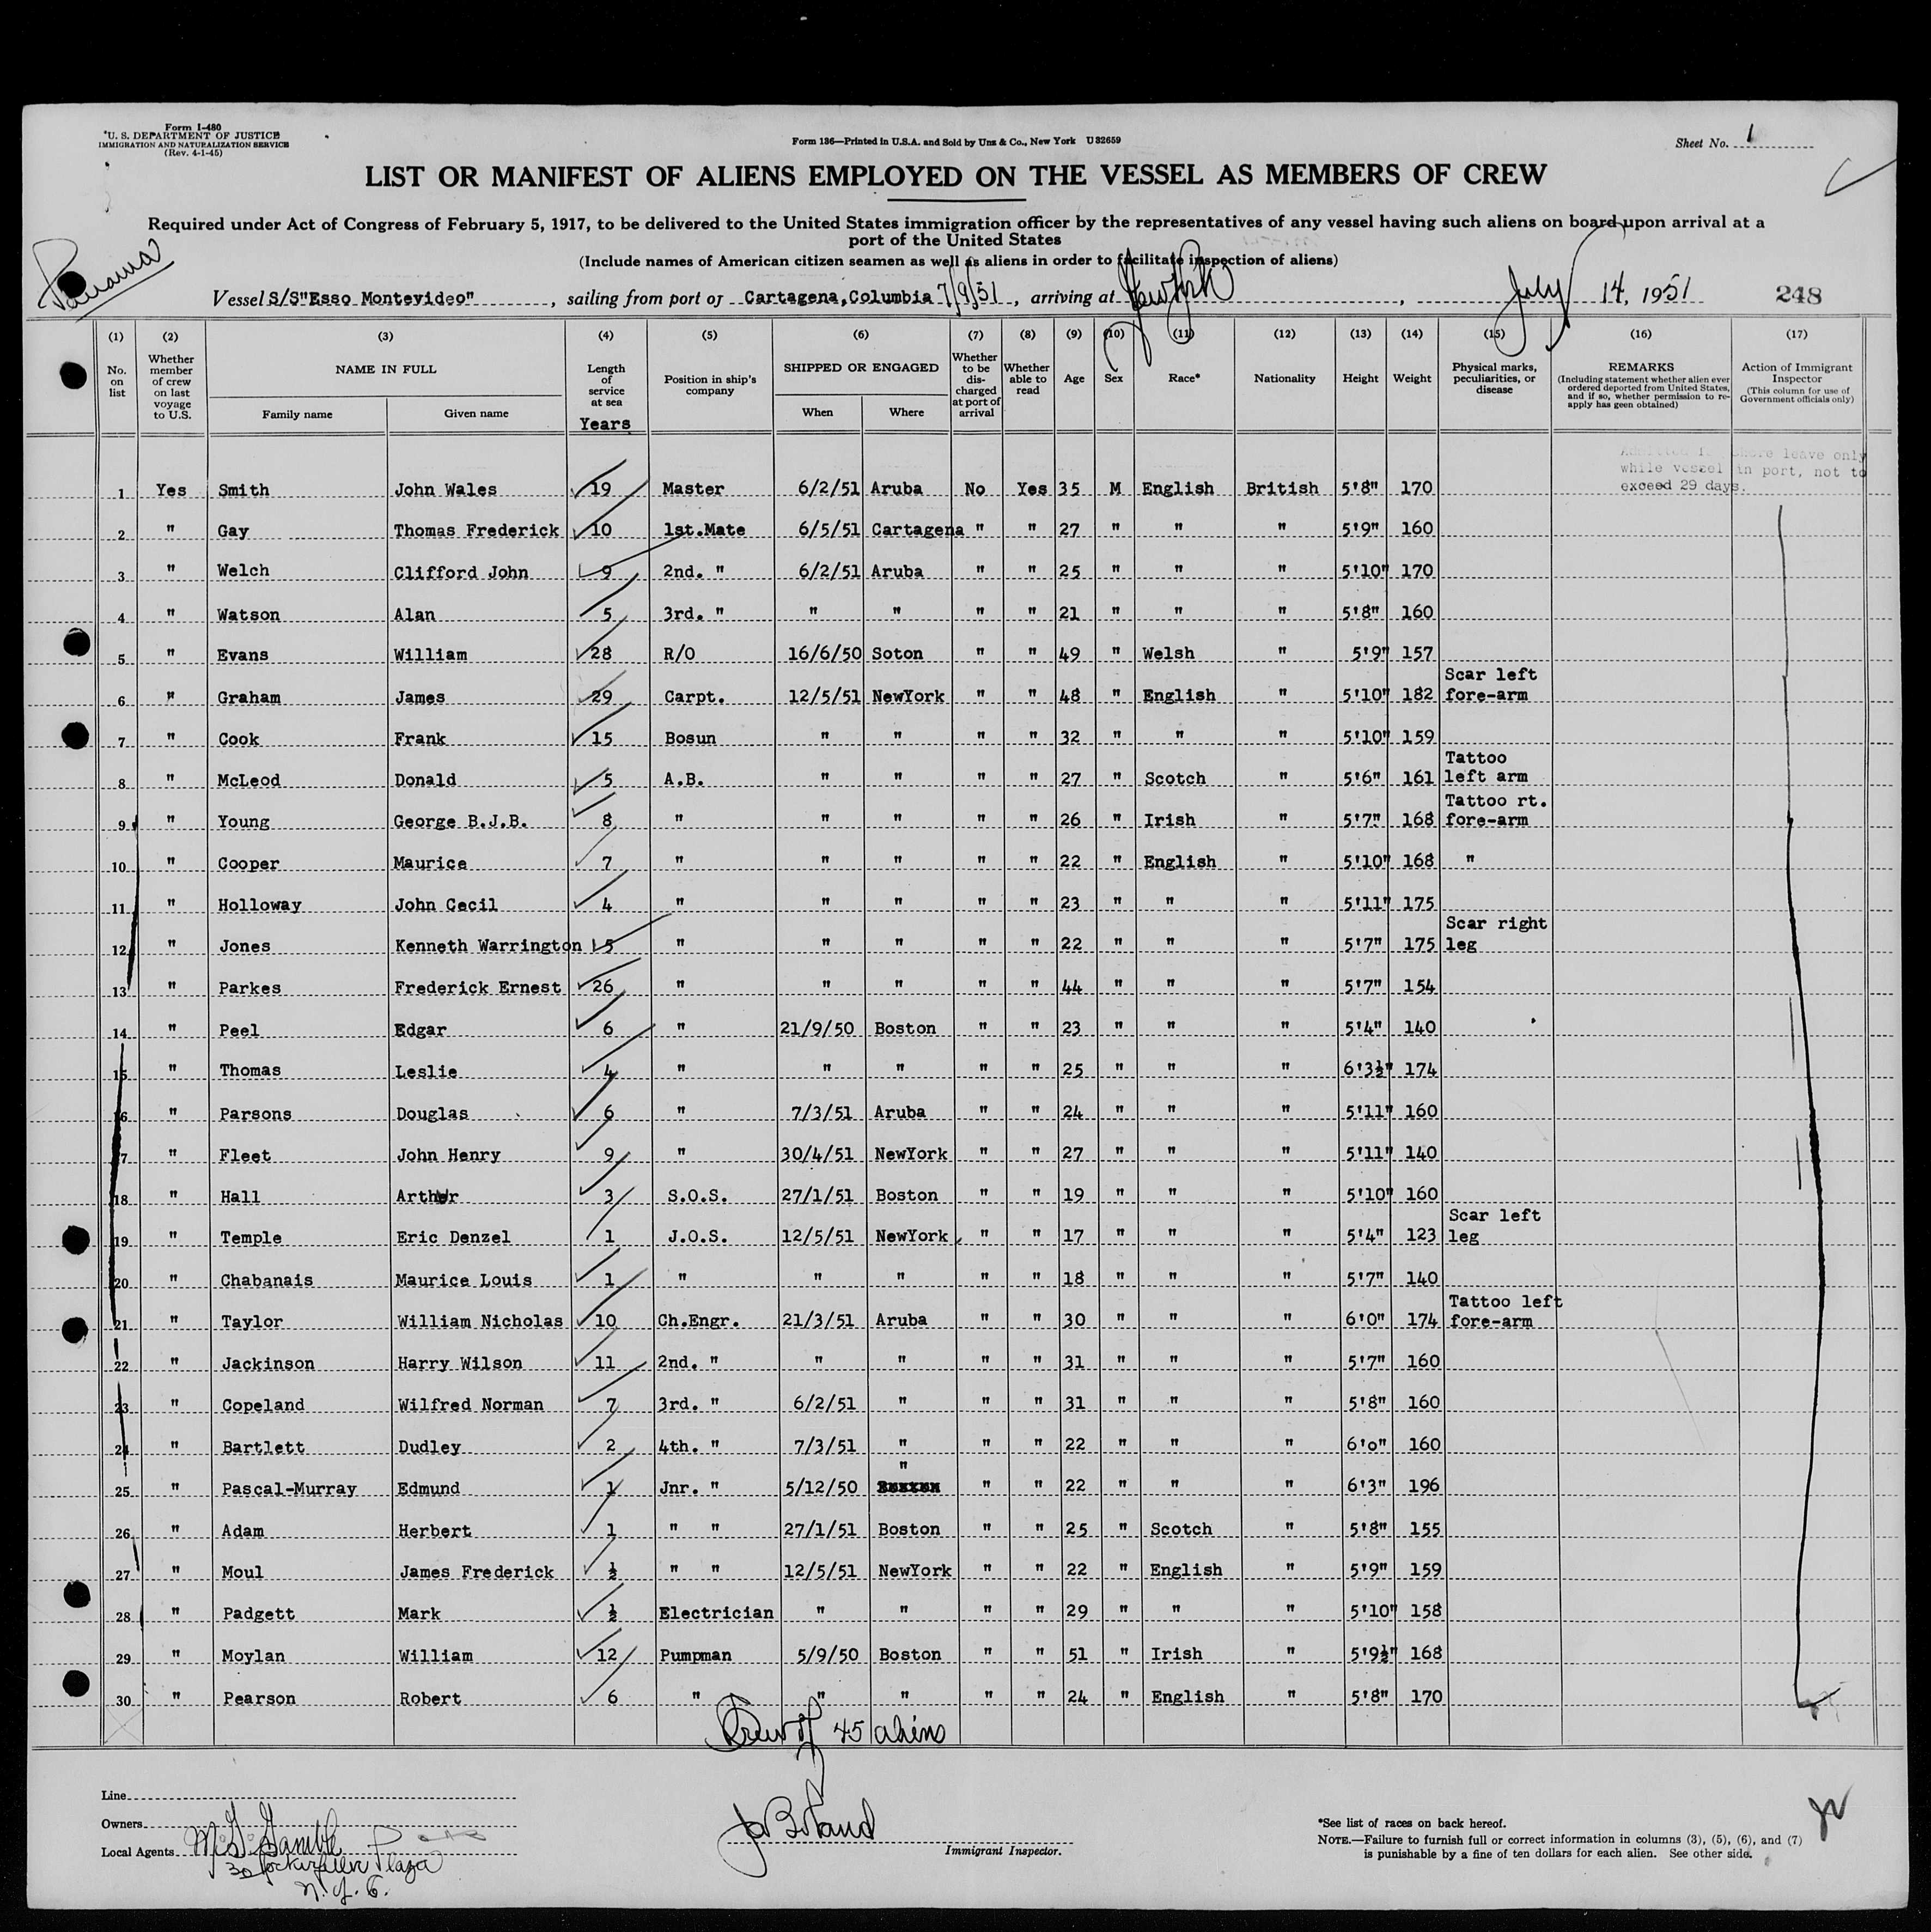 Form I-480
*U. S. DEPARTMENT OF JUSTICE
IMMIGRATION AND NATURALIZATION SERVICE
(Rev. 4-1-45)
Form 136—Printed in U.S.A. and Sold by Unz & Co., New York U 32659
Sheet No. 1
LIST OR MANIFEST OF ALIENS EMPLOYED ON THE VESSEL AS MEMBERS OF CREW
Required under Act of Congress of February 5, 1917, to be delivered to the United States immigration officer by the representatives of any vessel having such aliens on board upon arrival at a
port of the United States
(Include names of American citizen seamen as well as aliens in order to facilitate inspection of aliens)
Panama
Vessel S/S"Esso Montevideo", sailing from port of Cartagena,Columbia 7/9/51, arriving at New York, July 14, 1951 248
(1) (2) (3) (4) (5) (6) (7) (8) (9) (10) (11) (12) (13) (14) (15) (16) (17)
No. on list
Whether member of crew on last voyage to U.S.
NAME IN FULL
Family name
Given name
Length of service at sea
Years
Position in ship's company
SHIPPED OR ENGAGED
When
Where
Whether to be discharged at port of arrival
Whether able to read
Age
Sex
Race*
Nationality
Height
Weight
Physical marks, peculiarities, or disease
REMARKS
(Including statement whether alien ever ordered deported from United States, and if so, whether permission to re-apply has geen obtained)
Action of Immigrant Inspector
(This column for use of Government officials only)
shore leave only
while vessel in port, not to
exceed 29 days.
1 Yes Smith John Wales 19 Master 6/2/51 Aruba No Yes 35 M English British 5'8" 170
2 " Gay Thomas Frederick 10 1st.Mate 6/5/51 Cartagena " " 27 " " " 5'9" 160
3 " Welch Clifford John 9 2nd. " 6/2/51 Aruba " " 25 " " " 5'10" 170
4 " Watson Alan 5 3rd. " " " " " 21 " " " 5'8" 160
5 " Evans William 28 R/O 16/6/50 Soton " " 49 " Welsh " 5'9" 157
6 " Graham James 29 Carpt. 12/5/51 NewYork " " 48 " English " 5'10" 182 Scar left fore-arm
7 " Cook Frank 15 Bosun " " " " 32 " " " 5'10" 159
8 " McLeod Donald 5 A.B. " " " " 27 " Scotch " 5'6" 161 Tattoo left arm
9 " Young George B.J.B. 8 " " " " " 26 " Irish " 5'7" 168 Tattoo rt. fore-arm
10 " Cooper Maurice 7 " " " " " 22 " English " 5'10" 168 "
11 " Holloway John Cecil 4 " " " " " 23 " " " 5'11" 175
12 " Jones Kenneth Warrington 5 " " " " " 22 " " " 5'7" 175 Scar right leg
13 " Parkes Frederick Ernest 26 " " " " " 44 " " " 5'7" 154
14 " Peel Edgar 6 " 21/9/50 Boston " " 23 " " " 5'4" 140
15 " Thomas Leslie 4 " " " " " 25 " " " 6'3½" 174
16 " Parsons Douglas 6 " 7/3/51 Aruba " " 24 " " " 5'11" 160
17 " Fleet John Henry 9 " 30/4/51 NewYork " " 27 " " " 5'11" 140
18 " Hall Arthur 3 S.O.S. 27/1/51 Boston " " 19 " " " 5'10" 160
19 " Temple Eric Denzel 1 J.O.S. 12/5/51 NewYork " " 17 " " " 5'4" 123 Scar left leg
20 " Chabanais Maurice Louis 1 " " " " " 18 " " " 5'7" 140
21 " Taylor William Nicholas 10 Ch.Engr. 21/3/51 Aruba " " 30 " " " 6'0" 174 Tattoo left fore-arm
22 " Jackinson Harry Wilson 11 2nd. " " " " " 31 " " " 5'7" 160
23 " Copeland Wilfred Norman 7 3rd. " 6/2/51 " " " 31 " " " 5'8" 160
24 " Bartlett Dudley 2 4th. " 7/3/51 " " " 22 " " " 6'0" 160
25 " Pascal-Murray Edmund 1 Jnr. " 5/12/50 " " " 22 " " " 6'3" 196
26 " Adam Herbert 1 " " 27/1/51 Boston " " 25 " Scotch " 5'8" 155
27 " Moul James Frederick ½ " " 12/5/51 NewYork " " 22 " English " 5'9" 159
28 " Padgett Mark ½ Electrician " " " " 29 " " " 5'10" 158
29 " Moylan William 12 Pumpman 5/9/50 Boston " " 51 " Irish " 5'9½" 168
30 " Pearson Robert 6 " " " " " 24 " English " 5'8" 170
Crew of 45 aliens
Line
Owners
Local Agents M. G. Gamble
30 Rockefeller Plaza
N. Y. C.
Immigrant Inspector.
*See list of races on back hereof.
NOTE.—Failure to furnish full or correct information in columns (3), (5), (6), and (7)
is punishable by a fine of ten dollars for each alien. See other side.